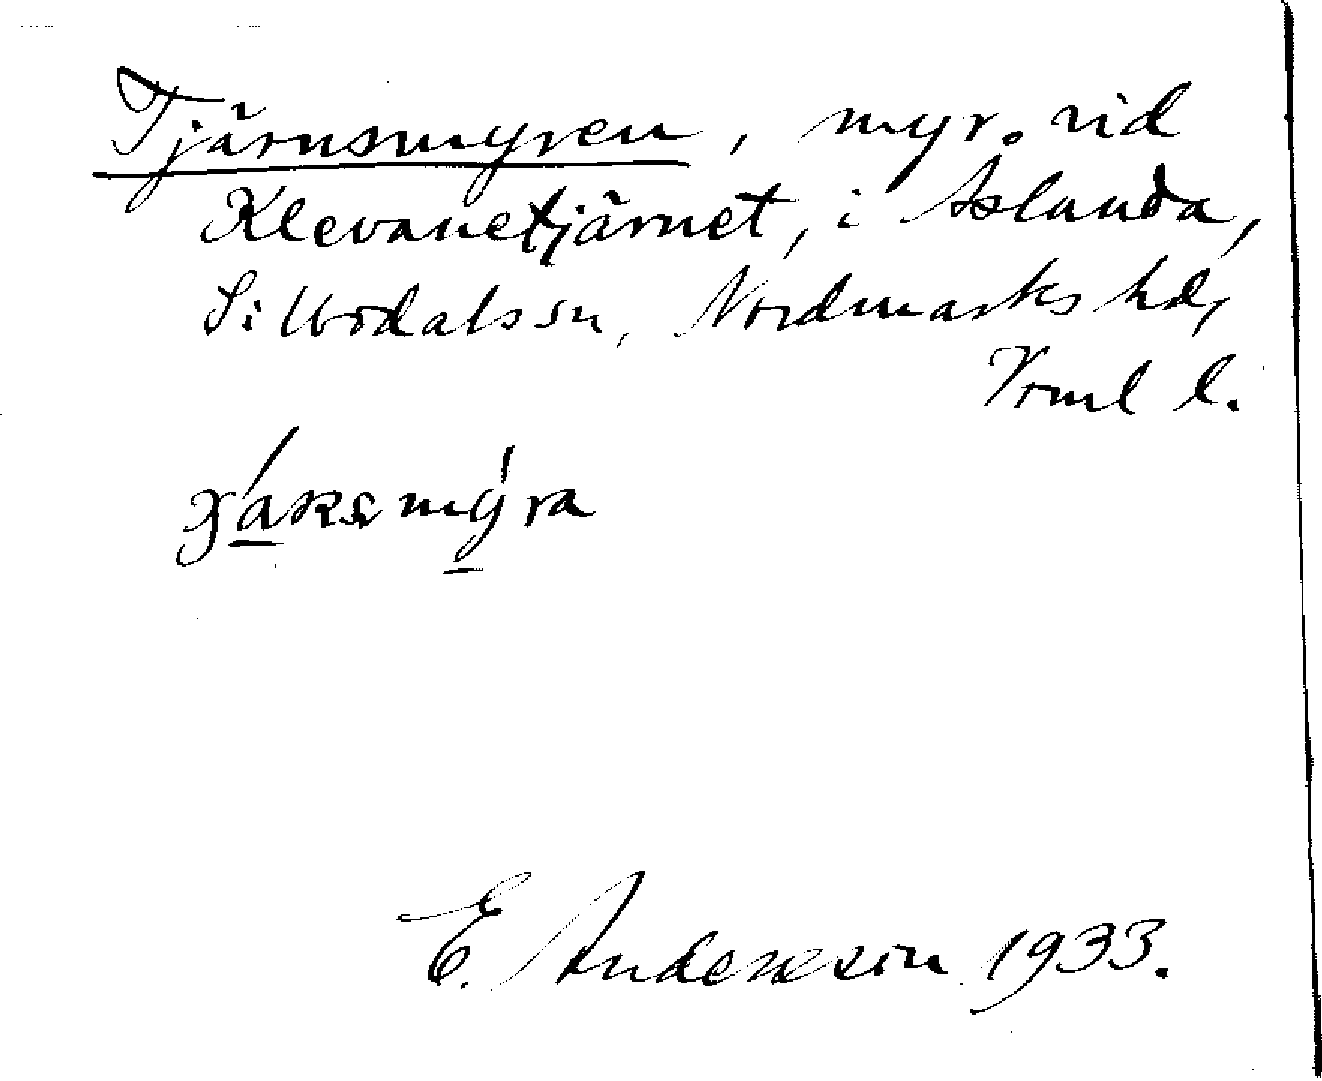 Tjärnsmyren, myr. vid
Klevanetjärnet, i Aslanda,
Sillbodalssn, Nordmarks hd,
Vrml l.
E. Andersson 1933.